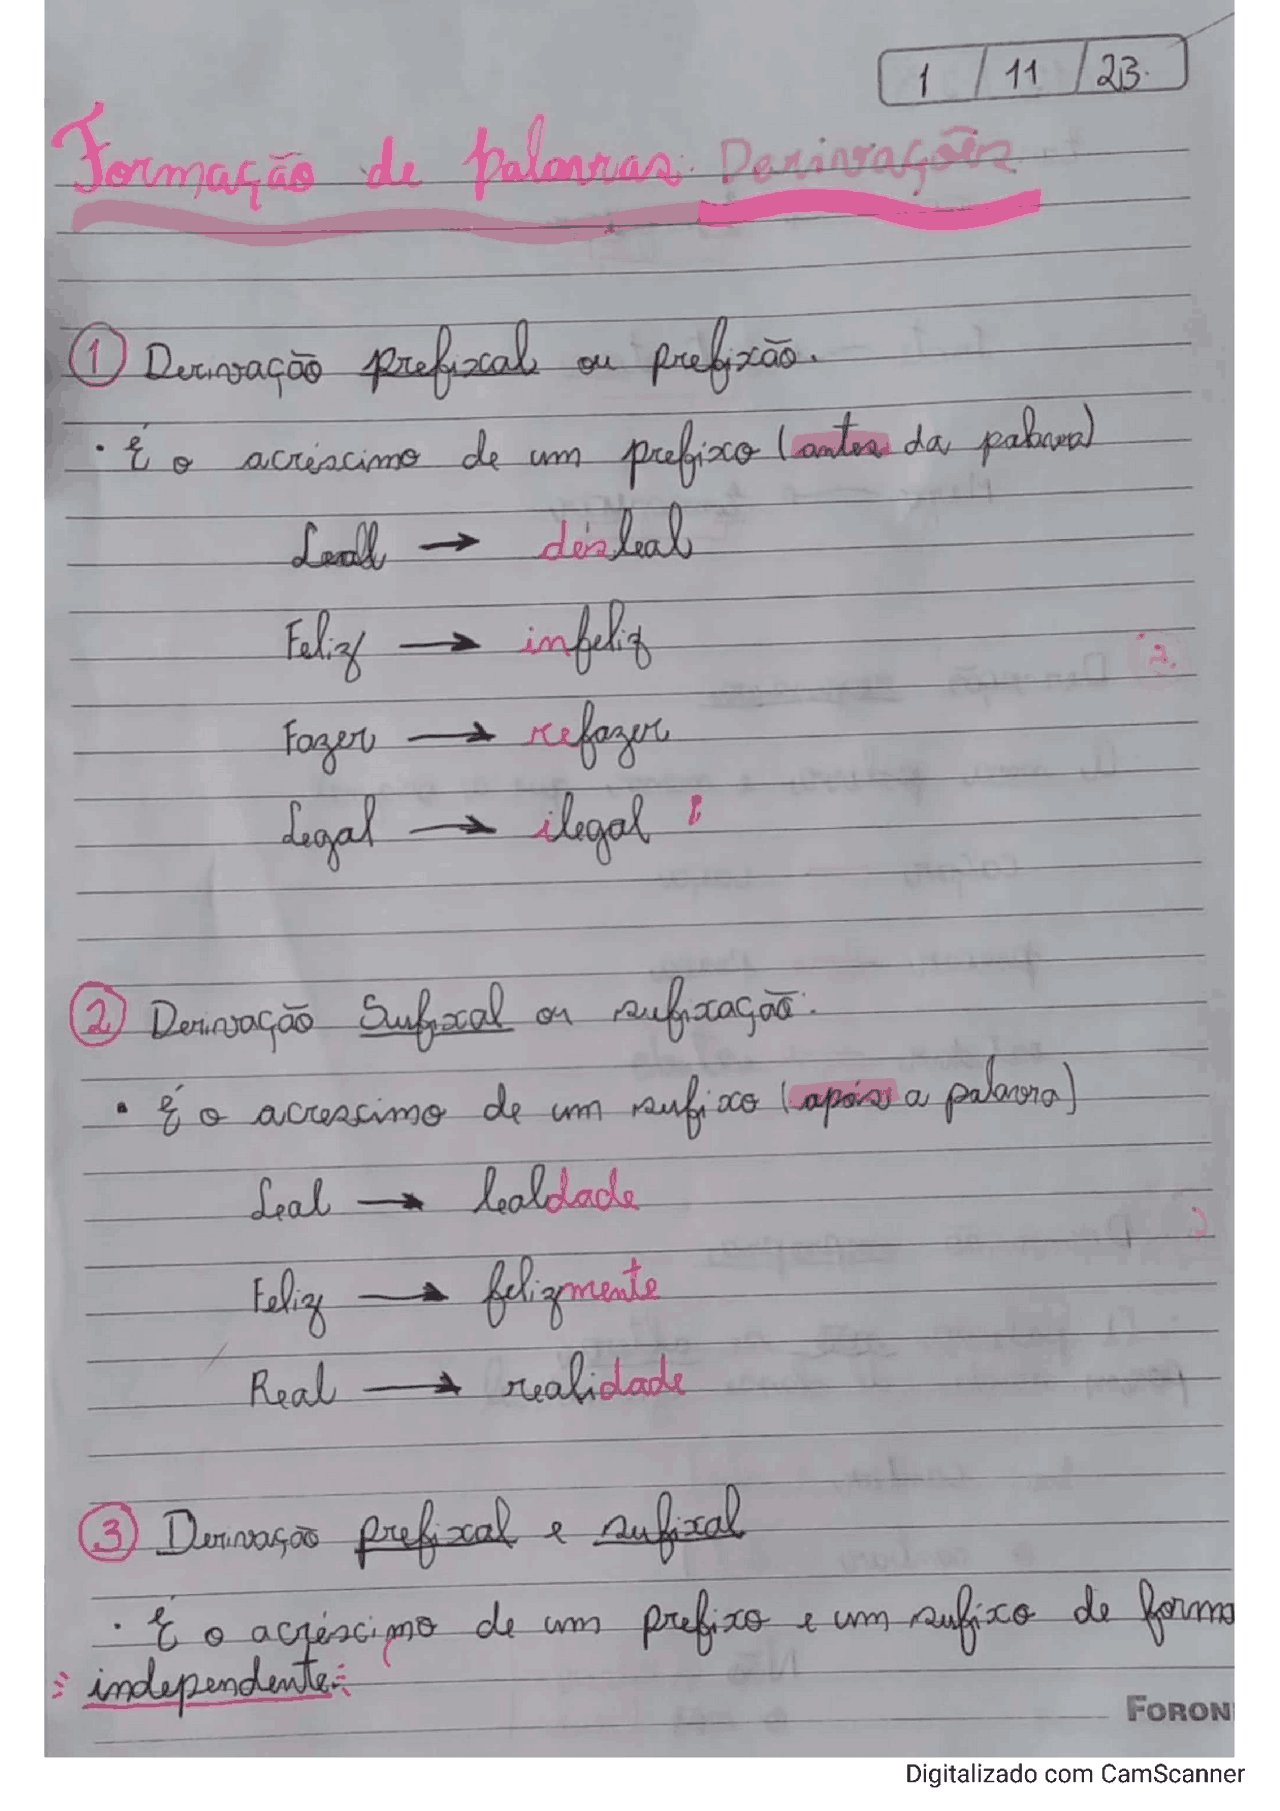 1 / 11 / 23.
Formação de palavras: Derivações
1 Derivação prefixal ou prefixão.
· É o acréscimo de um prefixo (antes da palavra)
Leal → desleal
Feliz → infeliz
Fazer → refazer
Legal → ilegal
2 Derivação Sufixal ou sufixação.
· É o acrescimo de um sufixo (após a palavra)
Leal → lealdade
Feliz → felizmente
Real → realidade
3 Derivação prefixal e sufixal
· É o acréscimo de um prefixo e um sufixo de forma
independente.
FORON
Digitalizado com CamScanner